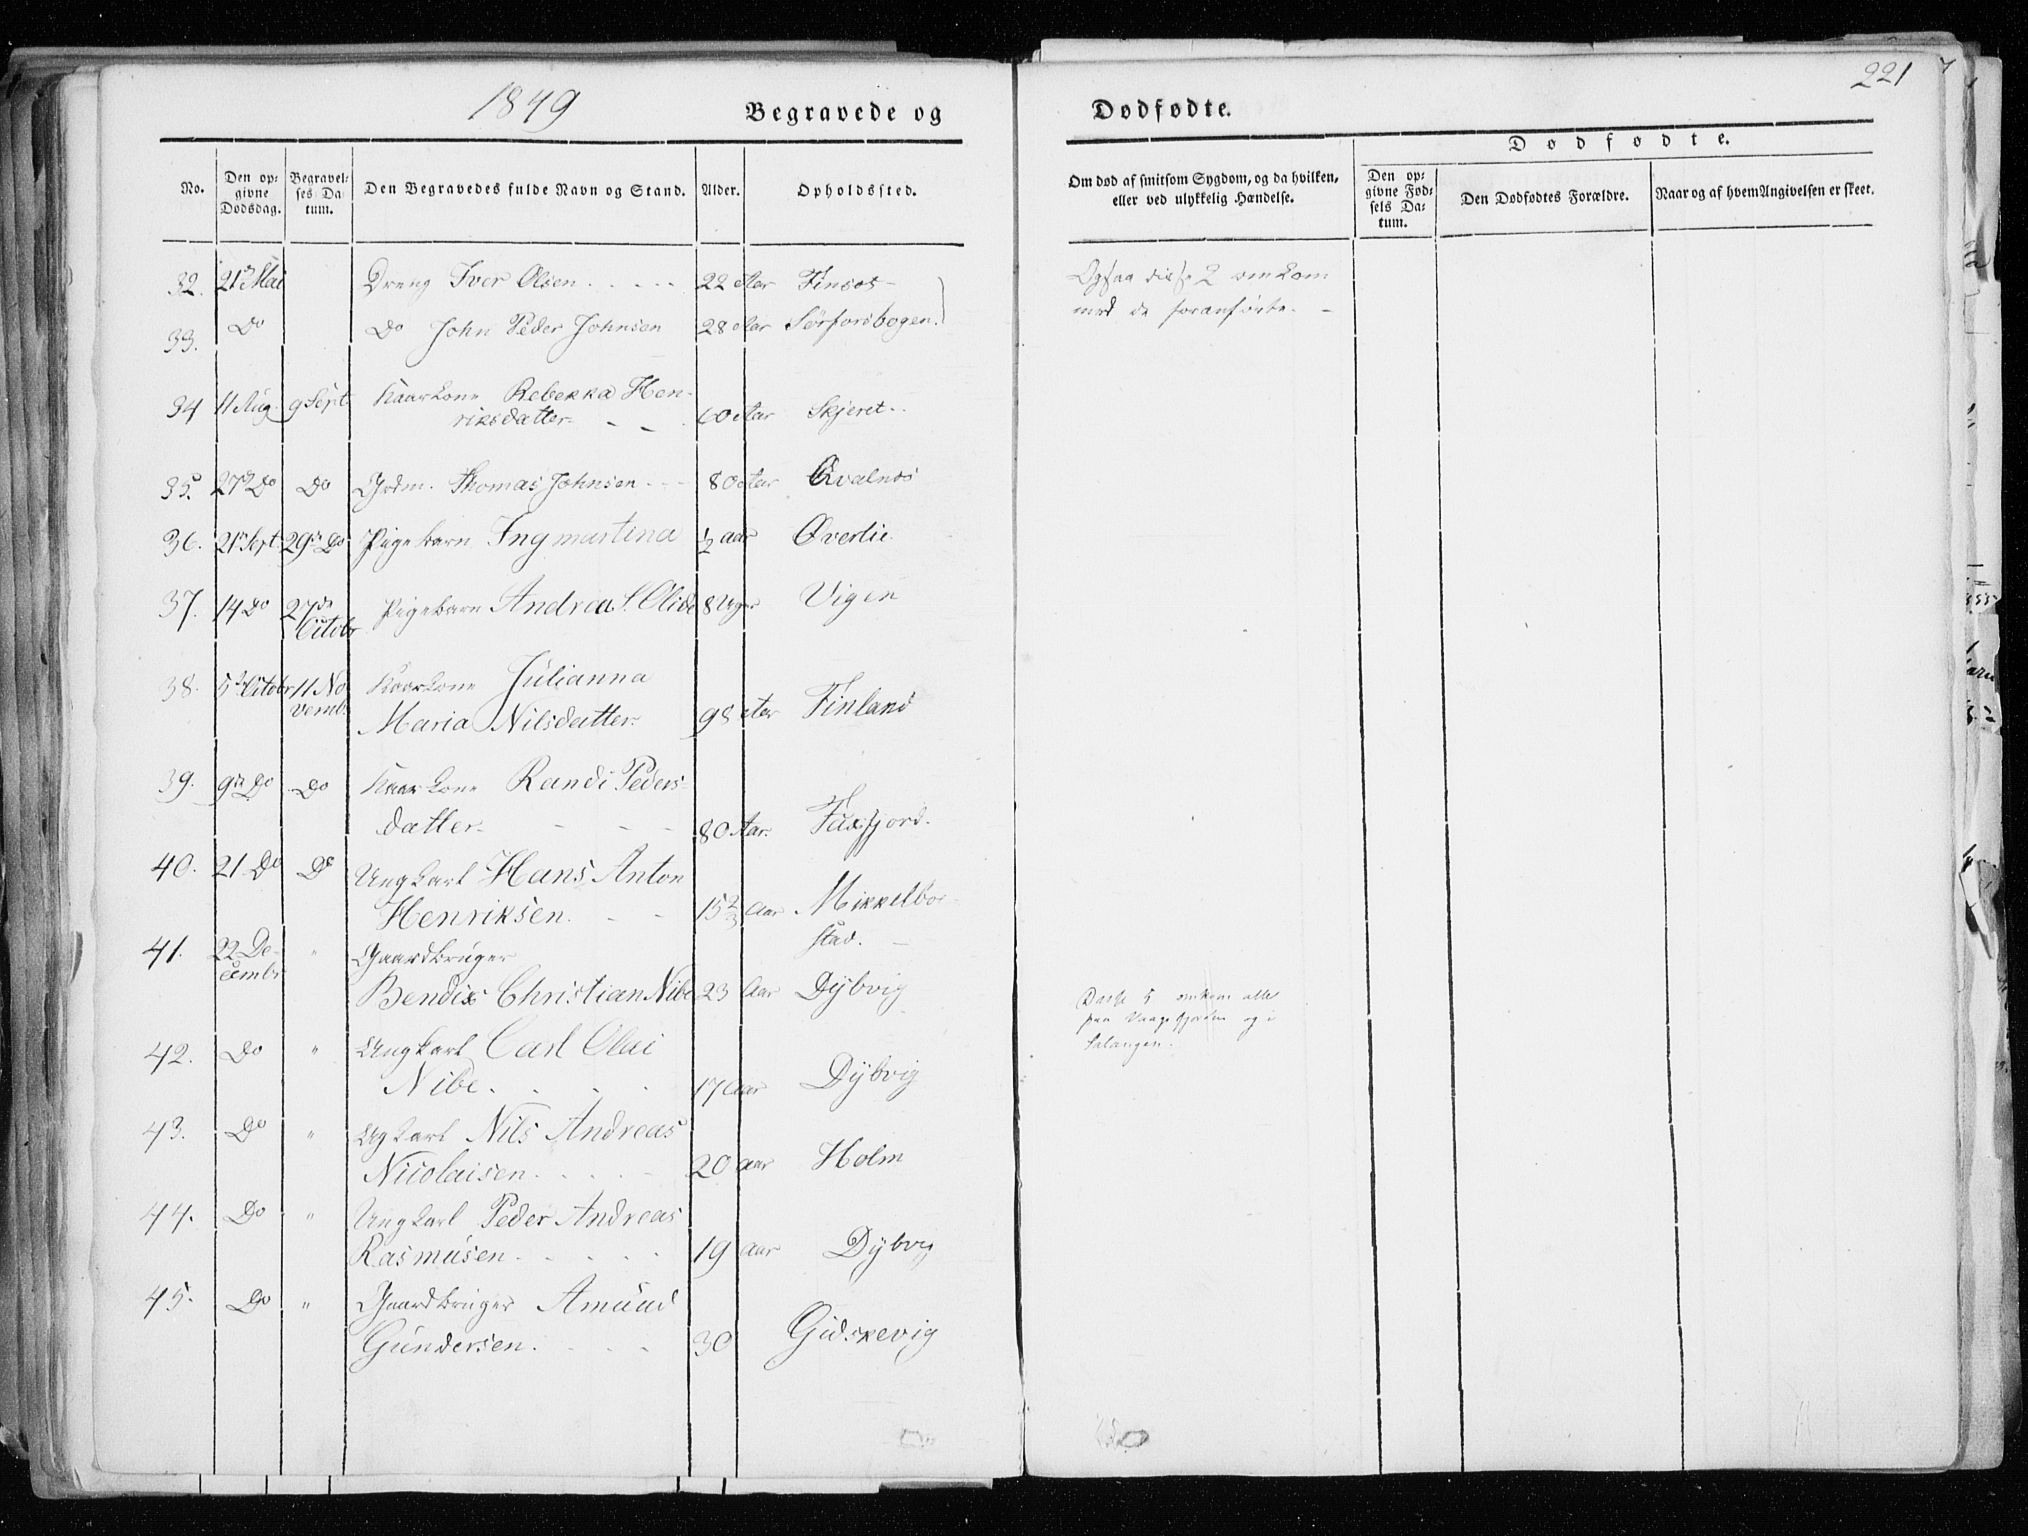 1849
Begravede og
Dødfødte.
221
Dødfødte.
No.
Den op-
givne
Dødsdag.
Begravel-
ses Da-
tum.
Den Begravedes fulde Navn og Stand.
Alder.
Opholdssted.
Om død af smitsom Sygdom, og da hvilken,
eller ved ulykkelig Hændelse.
Den op-
givne Fød-
sels Da-
tum.
Den Dødfødtes Forældre.
Naar og af hvem Angivelsen er skeet.
32. 21 Mai Dreng Iver Olsen 22 Aar Finsæs
Ogsaa disse 2 omkom
33. Do Do John Peder Johnsen 28 Aar Sørforsbogen.
med de foranførte.
34 11 Aug. 9 Sept. Kaarkone Rebekka Hen-
riksdatter 60 Aar Skjeret
35. 27 Do Do Grdm. Thomas Johnsen 80 Aar Qvalnæs
36. 21 Sept. 29 Do Pigebarn Ingmartina ½ aar Øverlie
37. 14 Do 27de
Octobr Pigebarn Andrea S. Olide 8 Uger Vigen
38. 5 Octobr 11 No
vemb. Kaarkone Julianna
Maria Nilsdatter 98 Aar Finland
39. 9 Do Do Kaarkone Randi Peders-
datter 80 Aar. Faxfjord.
40. 21 Do Do Ungkarl Hans Anton
Henriksen. 15 2/3 Aar Mikkelbo-
stad.
41. 22 De-
cembr " Gaardbruger
Bendix Christian Nibe 23 Aar Dÿbvig
Disse 5 omkom alle
paa Vaagsfjorden og i
Salangen.
42. Do " Ungkarl Carl Olai
Nibe. 17 Aar Dÿbvig
43. Do " Ugkarl Nils Andreas
Nicolaisen. 20 aar Holm
44. Do " Ungkarl Peder Andreas
Rasmusen 19 aar Dÿbvig
45. Do " Gaardbruger Amund
Gundersen. 30 Gidskevig